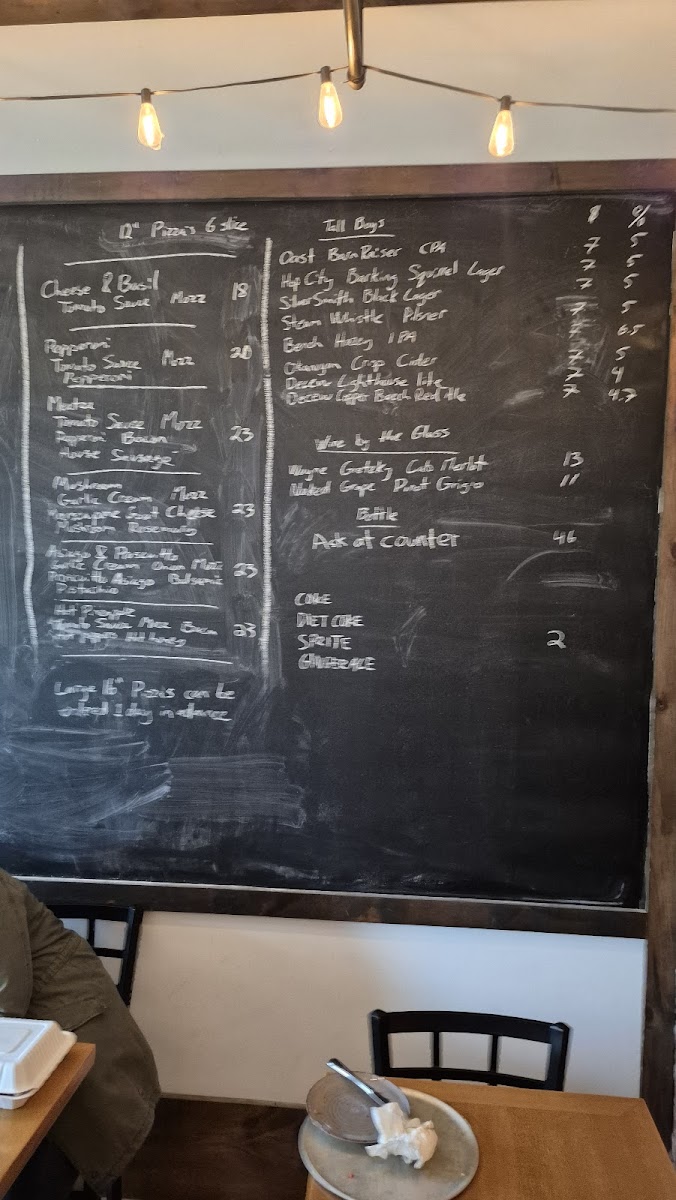 12" Pizza's 6 slice
Cheese & Basil
Tomato Sauce Mozz 18
Pepperoni
Tomato Sauce Mozz 20
Pepperoni
Meatza
Tomato Sauce Mozz
Pepperoni Bacon 23
House Sausage
Mushroom
Garlic Cream Mozz
Marscapone Goat Cheese 23
Mushroom Rosemary
Asiago & Proscuitto
Garlic Cream Onion Mozz
Proscuitto Asiago Balsamic 23
Pistachio
Hot Pineapple
Tomato Sauce Mozz Bacon
Pineapple Hot honey 23
Large 16" Pizzas can be
ordered 1 day in advance
Tall Boys $ %
Oast Barn Raiser CPA 7 5
Hop City Barking Squirrel Lager 7 5
SilverSmith Black Lager 7 5
Steam Whistle Pilsner 7 5
Bench Hazey IPA 7 6.5
Okanagan Crisp Cider 7 5
Decew Lighthouse lite 7 4
Decew Copper Beech Red Ale 7 4.7
Wine by the Glass
Wayne Gretzky Cab Merlot 13
Naked Grape Pinot Grigio 11
Bottle
Ask at counter 46
COKE
DIET COKE
SPRITE 2
GINGERALE